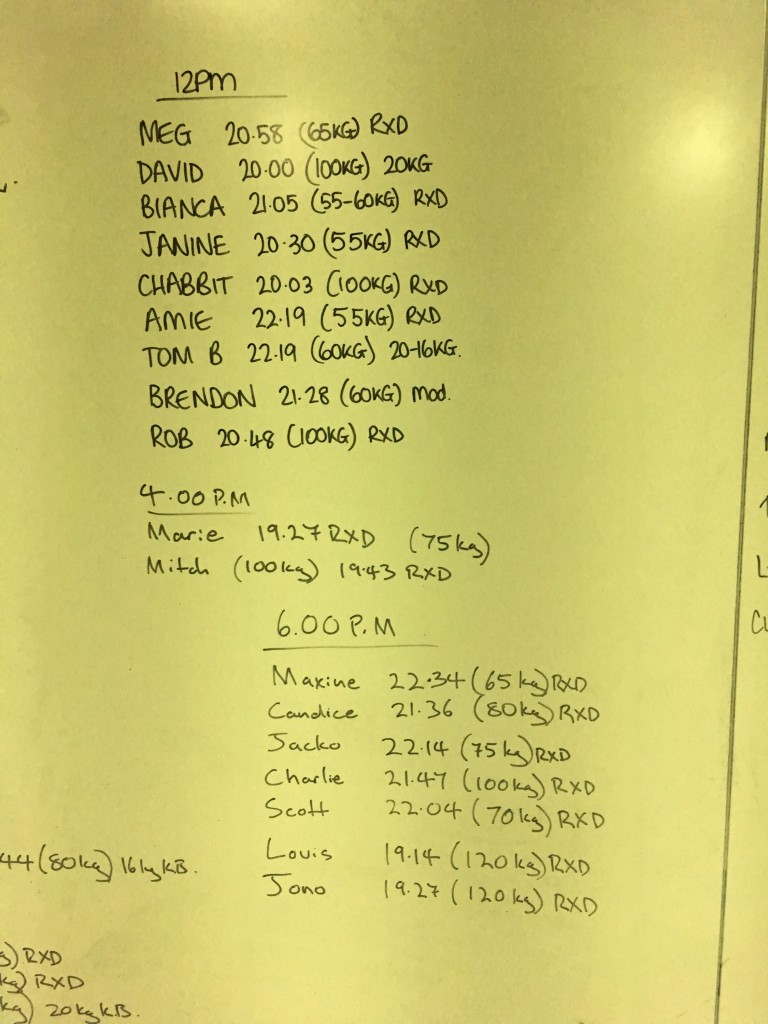 12PM
MEG 20.58 (65KG) RXD
DAVID 20.00 (100KG) 20KG
BIANCA 21.05 (55-60KG) RXD
JANINE 20.30 (55KG) RXD
CHABBIT 20.03 (100KG) RXD
AMIE 22.19 (55KG) RXD
TOM B 22.19 (60KG) 20-16KG.
BRENDON 21.28 (60KG) mod.
ROB 20.48 (100KG) RXD
4.00 P.M
Marie 19.27 RXD (75kg)
Mitch (100kg) 19.43 RXD
6.00 P.M
Maxine 22.34 (65kg) RXD
Candice 21.36 (80kg) RXD
Jacko 22.14 (75kg) RXD
Charlie 21.47 (100kg) RXD
Scott 22.04 (70kg) RXD
Louis 19.14 (120kg) RXD
Jono 19.27 (120kg) RXD
44 (80kg) 16kg KB.
g) RXD
kg) RXD
kg) 20kg KB.